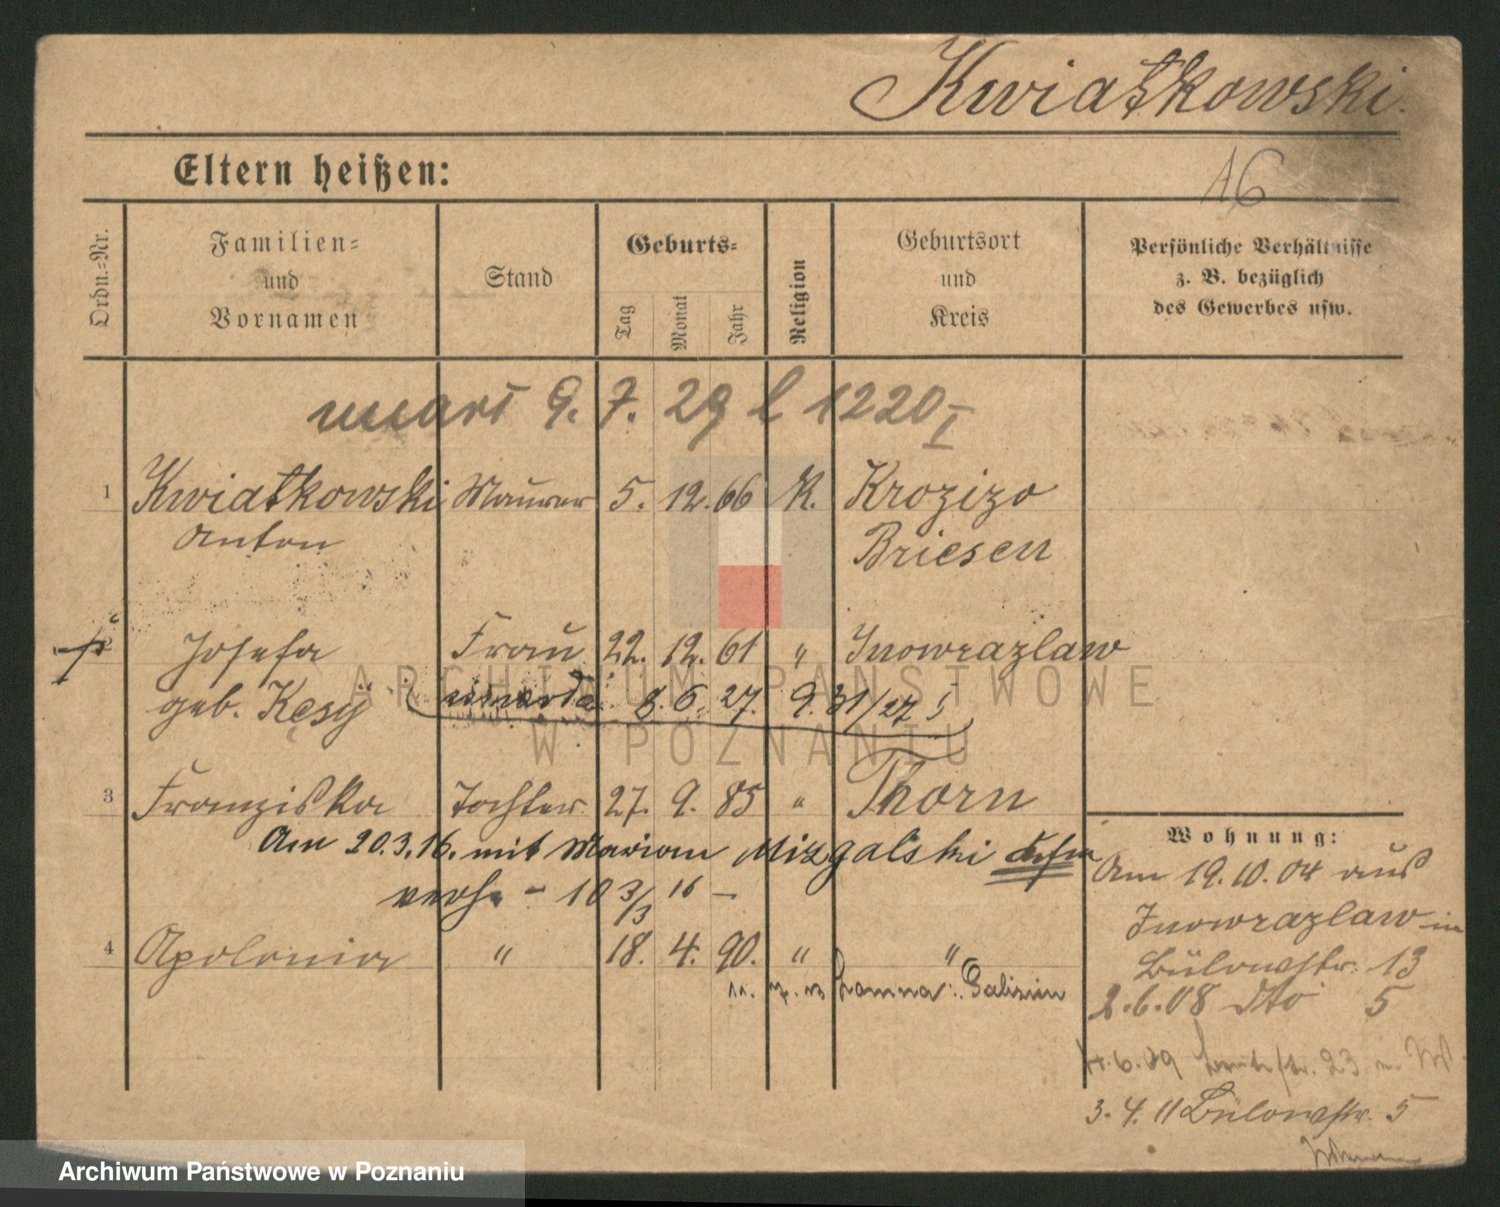 Kwiatkowski.
16
Eltern heißen:
Ordn.-Nr.
Familien-
und
Vornamen
Stand
Geburts-
Tag
Monat
Jahr
Religion
Geburtsort
und
Kreis
Persönliche Verhältnisse
z. B. bezüglich
des Gewerbes usw.
9. 7. 29 1220 I
1 Kwiatkowski Maurer 5. 12. 66 K. Krozizo
Anton Briesen
2 Josefa Frau 22. 12. 61 " Inowrazlaw
geb. Kęsy umarła 8. 6. 27. 9.31/27
3 Franziska Tochter 27. 9. 85 " Thorn
Am 20.3.16. mit Marian Mizgalski
verh. - 10 3/3 16 -
4 Apolonia " 18. 4. 90. " "
Wohnung:
Am 19.10.04 aus
Inowrazlaw in
Bülowstr. 13
2.6.08 dto 5
4.6.09 23
3.4.11 Bülowstr. 5
ARCHIWUM PAŃSTWOWE
W POZNANIU
Archiwum Państwowe w Poznaniu